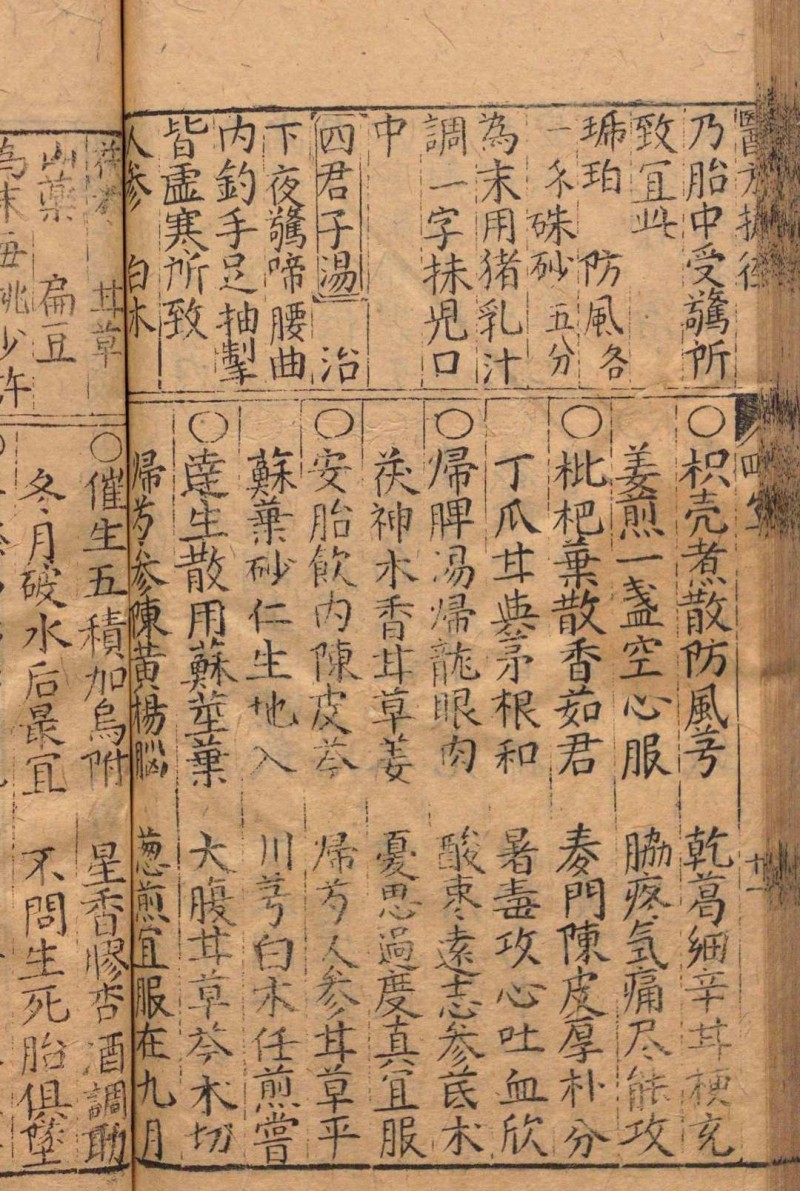 乃胎中受驚所
致宜此
琥珀 防風各
一𠆤硃砂五分
為末用猪乳汁
調一字抹児口
中
四君子湯 治
下夜驚啼腰曲
内釣手足抽掣
皆虚寒所致
人参 白术
茯苓 甘草
山藥 扁豆
○枳壳煮散防風芎 乾葛細辛甘梗充
姜煎一盏空心服 脇疼氣痛尽能攻
○枇杷葉散香茹君 麦門陳皮厚朴分
丁瓜甘與茅根和 暑毒攻心吐血欣
○帰脾湯帰龍眼肉 酸枣遠志参芪术
茯神木香甘草姜 憂思過度真宜服
○安胎飲内陳皮芩 帰芍人参甘草平
蘇葉砂仁生地入 川芎白术任煎嘗
○達生散用蘇莖葉 大腹甘草芩术切
帰芍参陳黄楊腦 葱煎宜服在九月
○催生五積加烏附 星香膠杏酒調助
冬月破水后最宜 不問生死胎俱墜